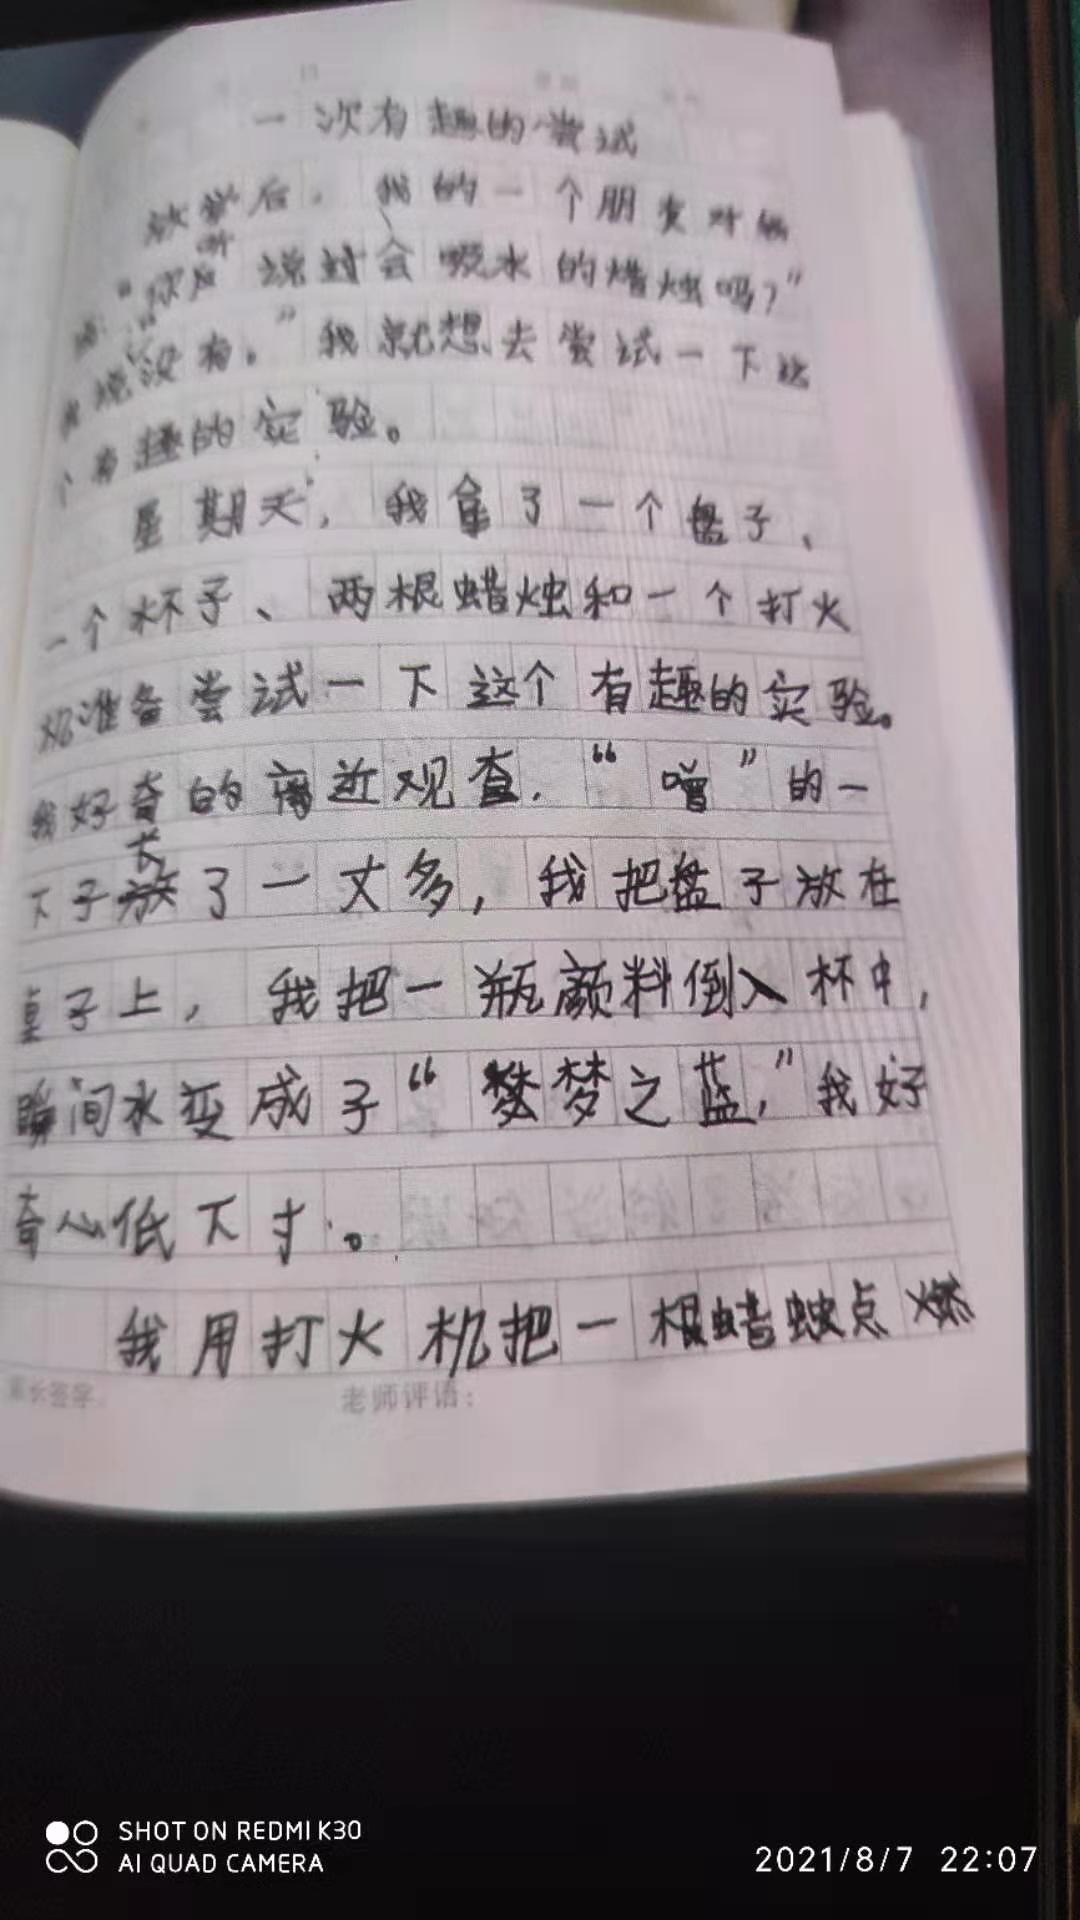 一次有趣的尝试
放学后，我的一个朋友对我
说："你听说过会吸水的蜡烛吗？"
我说没有。"我就想去尝试一下这
个有趣的实验。
星期天，我拿了一个盘子、
一个杯子、两根蜡烛和一个打火
机准备尝试一下这个有趣的实验。
我好奇的离近观查，"噌"的一
下子长了一丈多，我把盘子放在
桌子上，我把一瓶颜料倒入杯中，
瞬间水变成子"梦之蓝，"我好
奇心低下寸。
我用打火机把一根蜡点燃
家长签字：
老师评语：
SHOT ON REDMI K30
AI QUAD CAMERA
2021/8/7 22:07